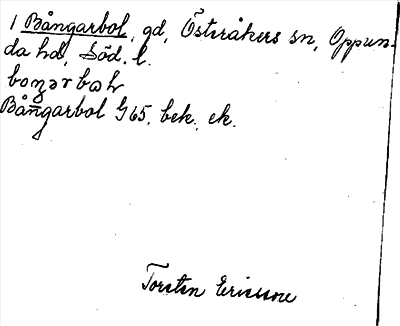 1 Bångarbol, gd, Österåkers sn, Oppun-
da hd, Söd. l.
Bångarbol G 65, bek., ek.
Torsten Ericsson